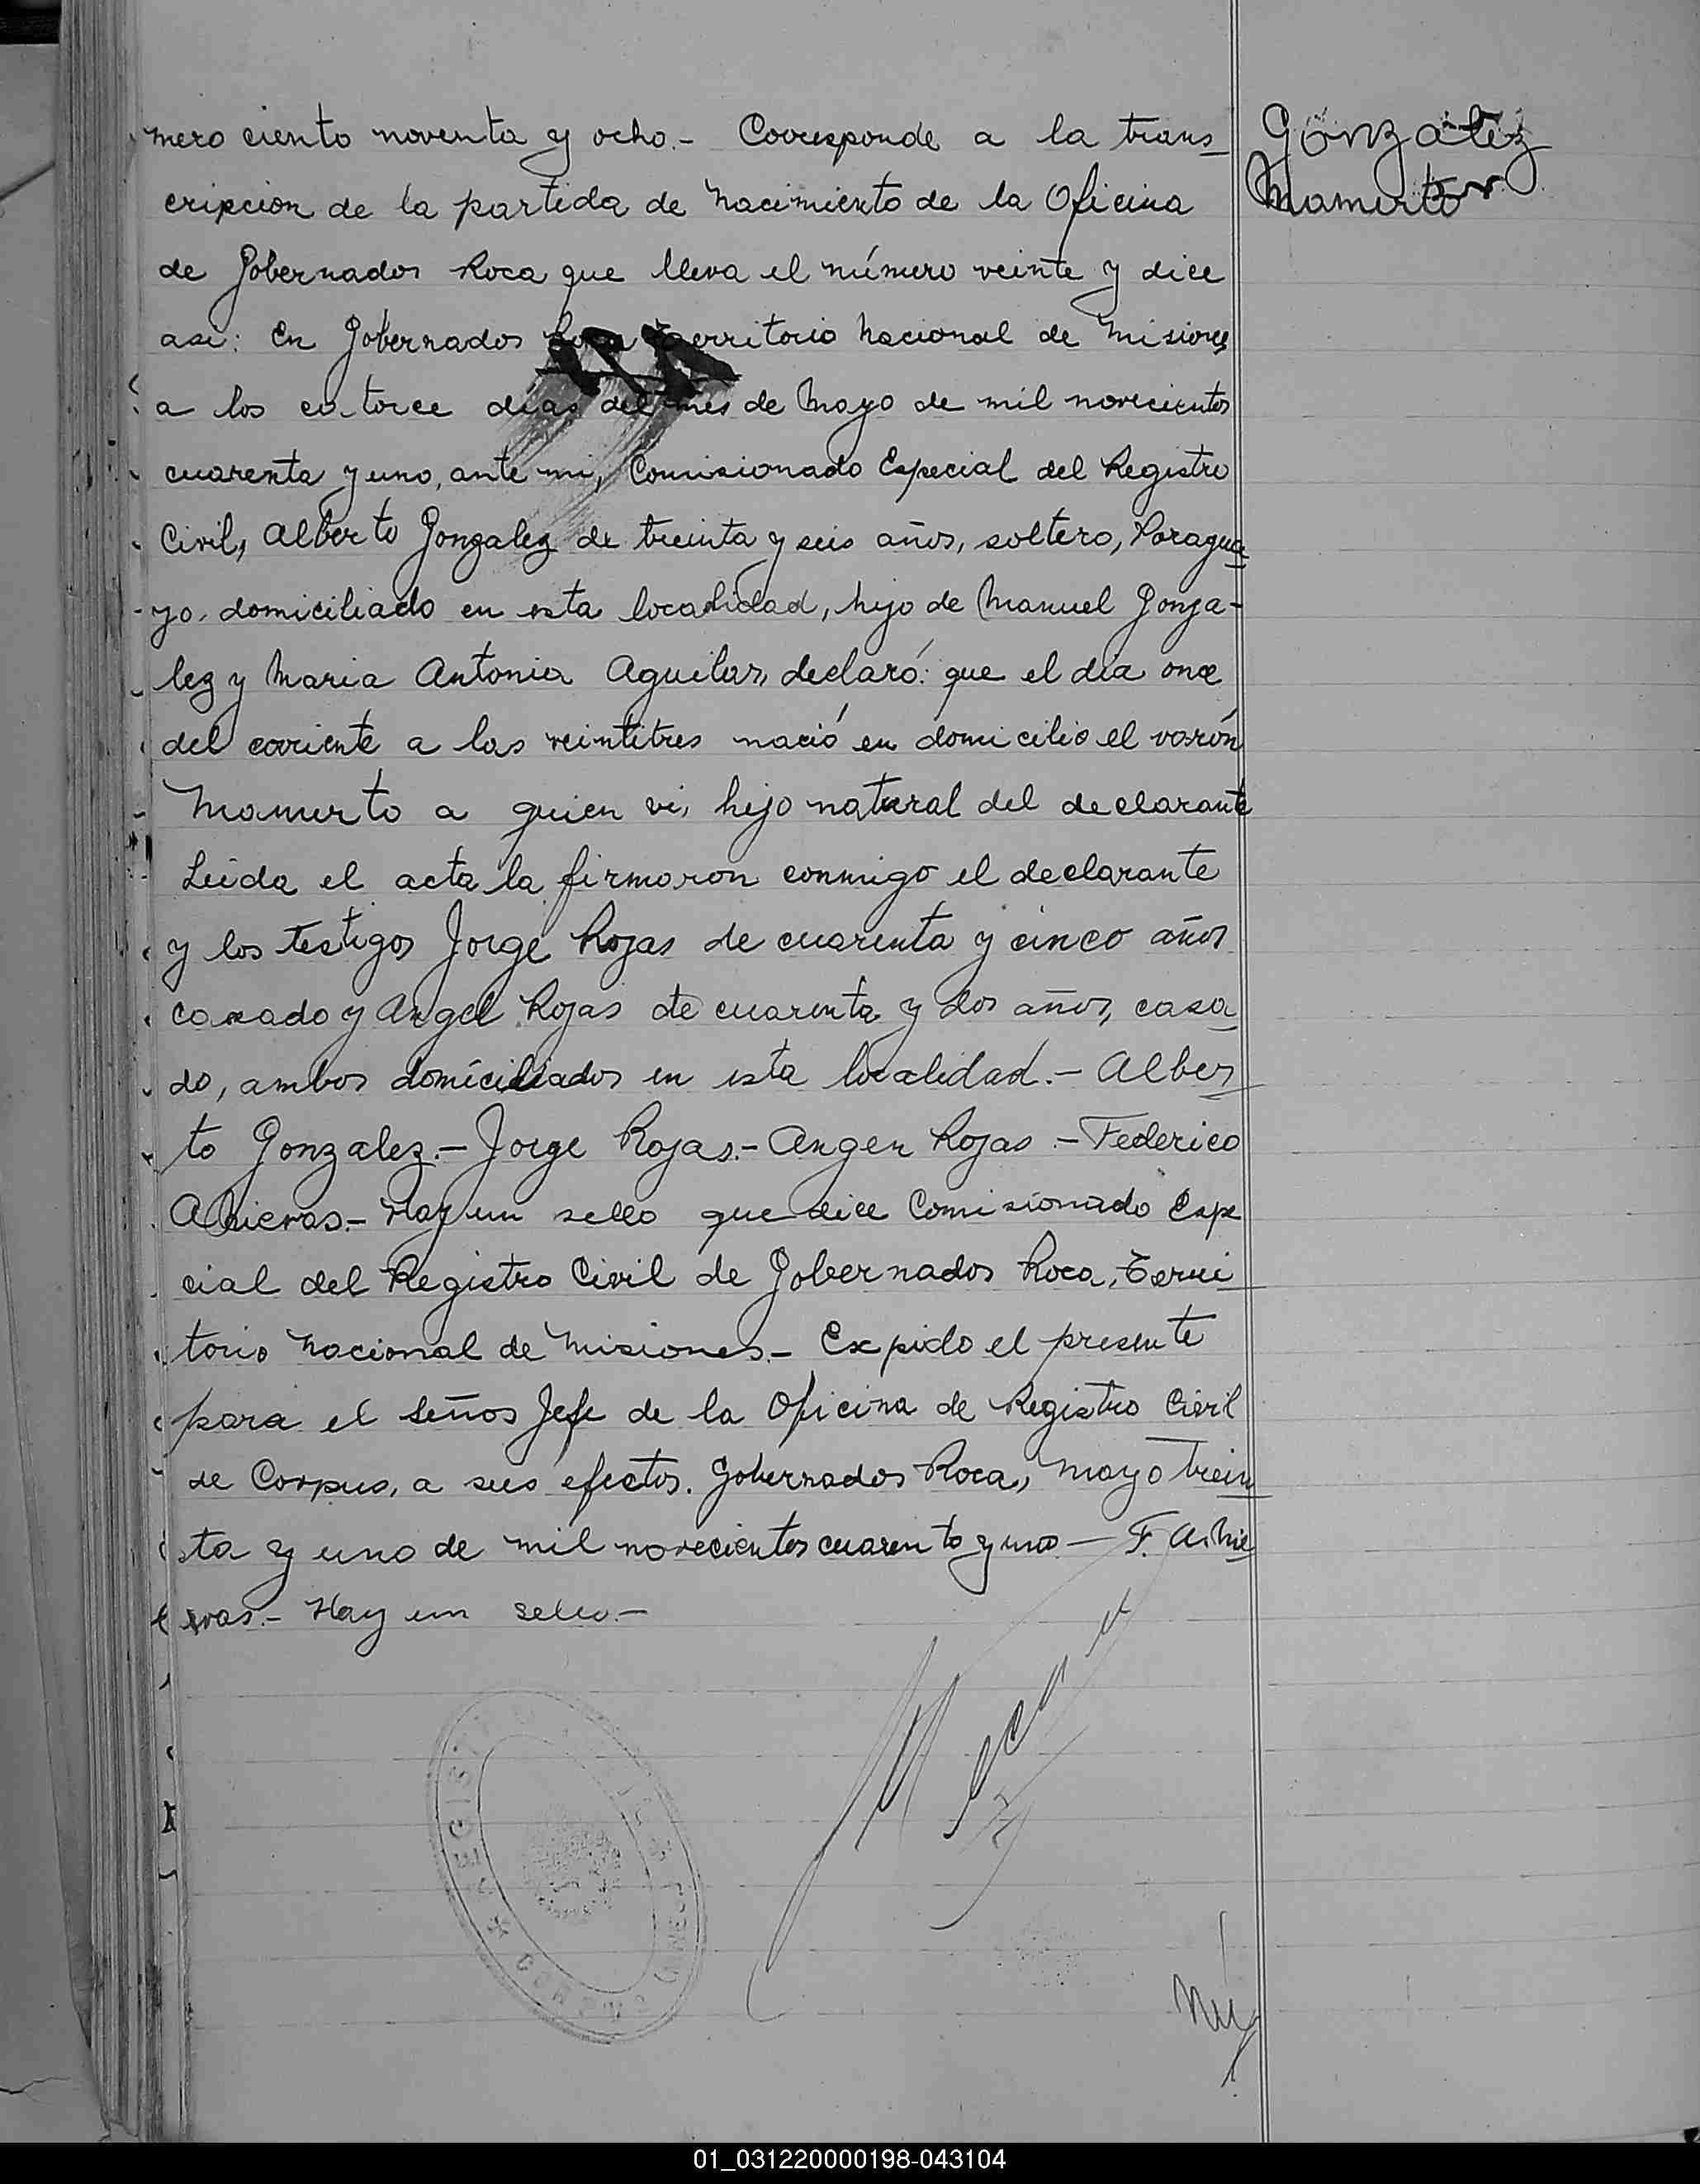 mero ciento noventa y ocho.- Corresponde a la trans_
cripcion de la partida de Nacimiento de la Oficina
de Gobernador Roca que lleva el número veinte y dice
asi: En Gobernador Roca Territorio Nacional de Misiones
a los catorce dias del mes de Mayo de mil novecientos
cuarenta y uno, ante mi, Comisionado Especial del Registro
Civil, Alberto Gonzalez de treinta y seis años, soltero, Paragua_
yo, domiciliado en esta localidad, hijo de Manuel Gonza-
lez y Maria Antonia Aguilar, declaró: que el día once
del corriente a las veintitres nació en domicilio el varón
Mamerto a quien vi, hijo natural del declarante
Leida el acta la firmaron conmigo el declarante
y los testigos Jorge Rojas de cuarenta y cinco años
casado y Angel Rojas de cuarenta y dos años, casa_
do, ambos domiciliados en esta localidad.- Alber_
to Gonzalez.- Jorge Rojas.- Angen Rojas.- Federico
Hay un sello que dice Comisionado Espe
cial del Registro Civil de Gobernador Roca, Terri_
torio Nacional de Misiones.- Expido el presente
para el Señor Jefe de la Oficina de Registro Civil
de Corpus, a sus efectos. Gobernador Roca, Mayo trein_
ta y uno de mil novecientos cuarenta y uno - F. A. Nie_
vas.- Hay un sello.-
Gonzalez
Mamerto
REGISTRO CIVIL
CORPUS (MISIONES)
01_031220000198-043104